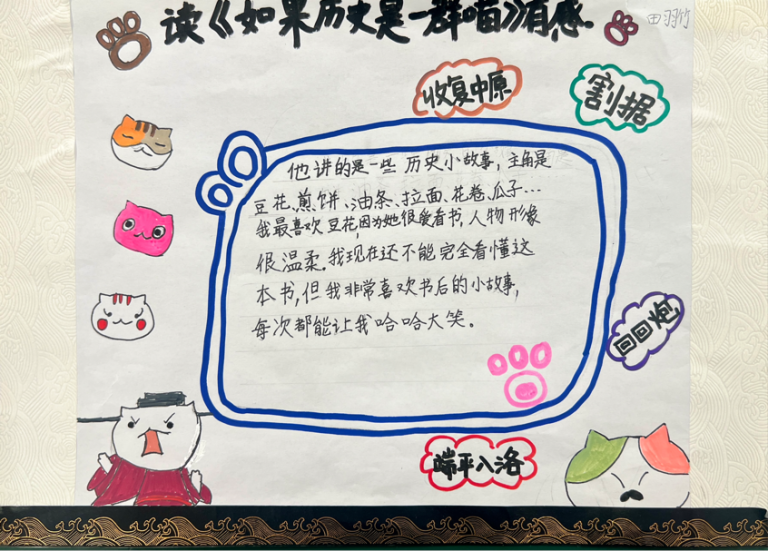 读《如果历史是一群喵》有感.
田羽竹
收复中原
割据
他讲的是一些历史小故事，主角是
豆花、煎饼、油条、拉面、花卷、瓜子…
我最喜欢豆花，因为她很爱看书，人物形象
很温柔。我现在还不能完全看懂这
本书，但我非常喜欢书后的小故事，
每次都能让我哈哈大笑。
回回炮
端平入洛